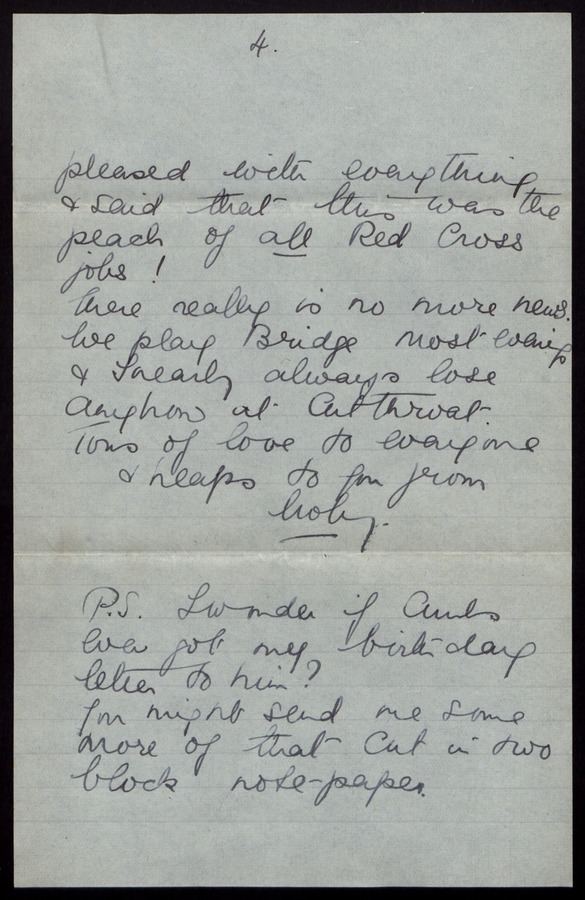 4.
pleased with everything
& said that this was the
peach of all Red Cross
jobs!
There really is no more news.
We play Bridge most evenings
& I nearly always lose
anyhow at Cut throat.
Tons of love to everyone
& heaps to you from

P.S. I wonder if
ever got my birthday
letter to him?
You might send me some
more of that cut in two
block note-paper.